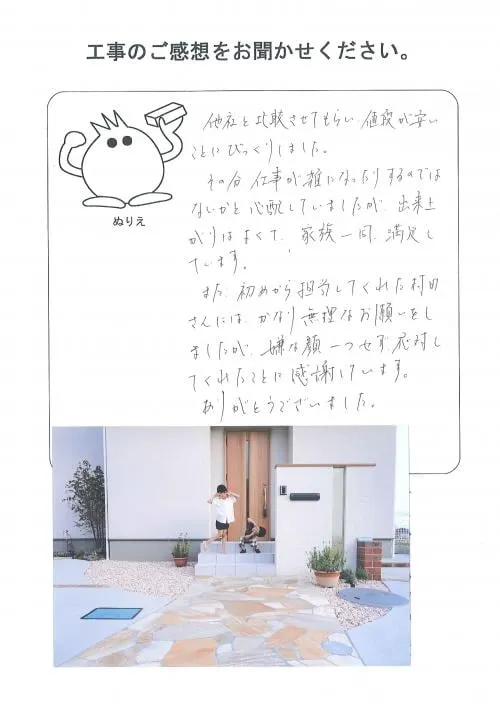 工事のご感想をお聞かせください。
ぬりえ
他社と比較させてもらい 値段が安い
ことにびっくりしました。
その分 仕事が雑になったりするのでは
ないかと心配していましたが、出来上
がりはよくて、家族一同、満足し
ています。
また、初めから担当してくれた村田
さんには、かなり無理なお願いをし
ましたが、嫌な顔一つせず応対し
てくれたことに感謝しています。
ありがとうございました。